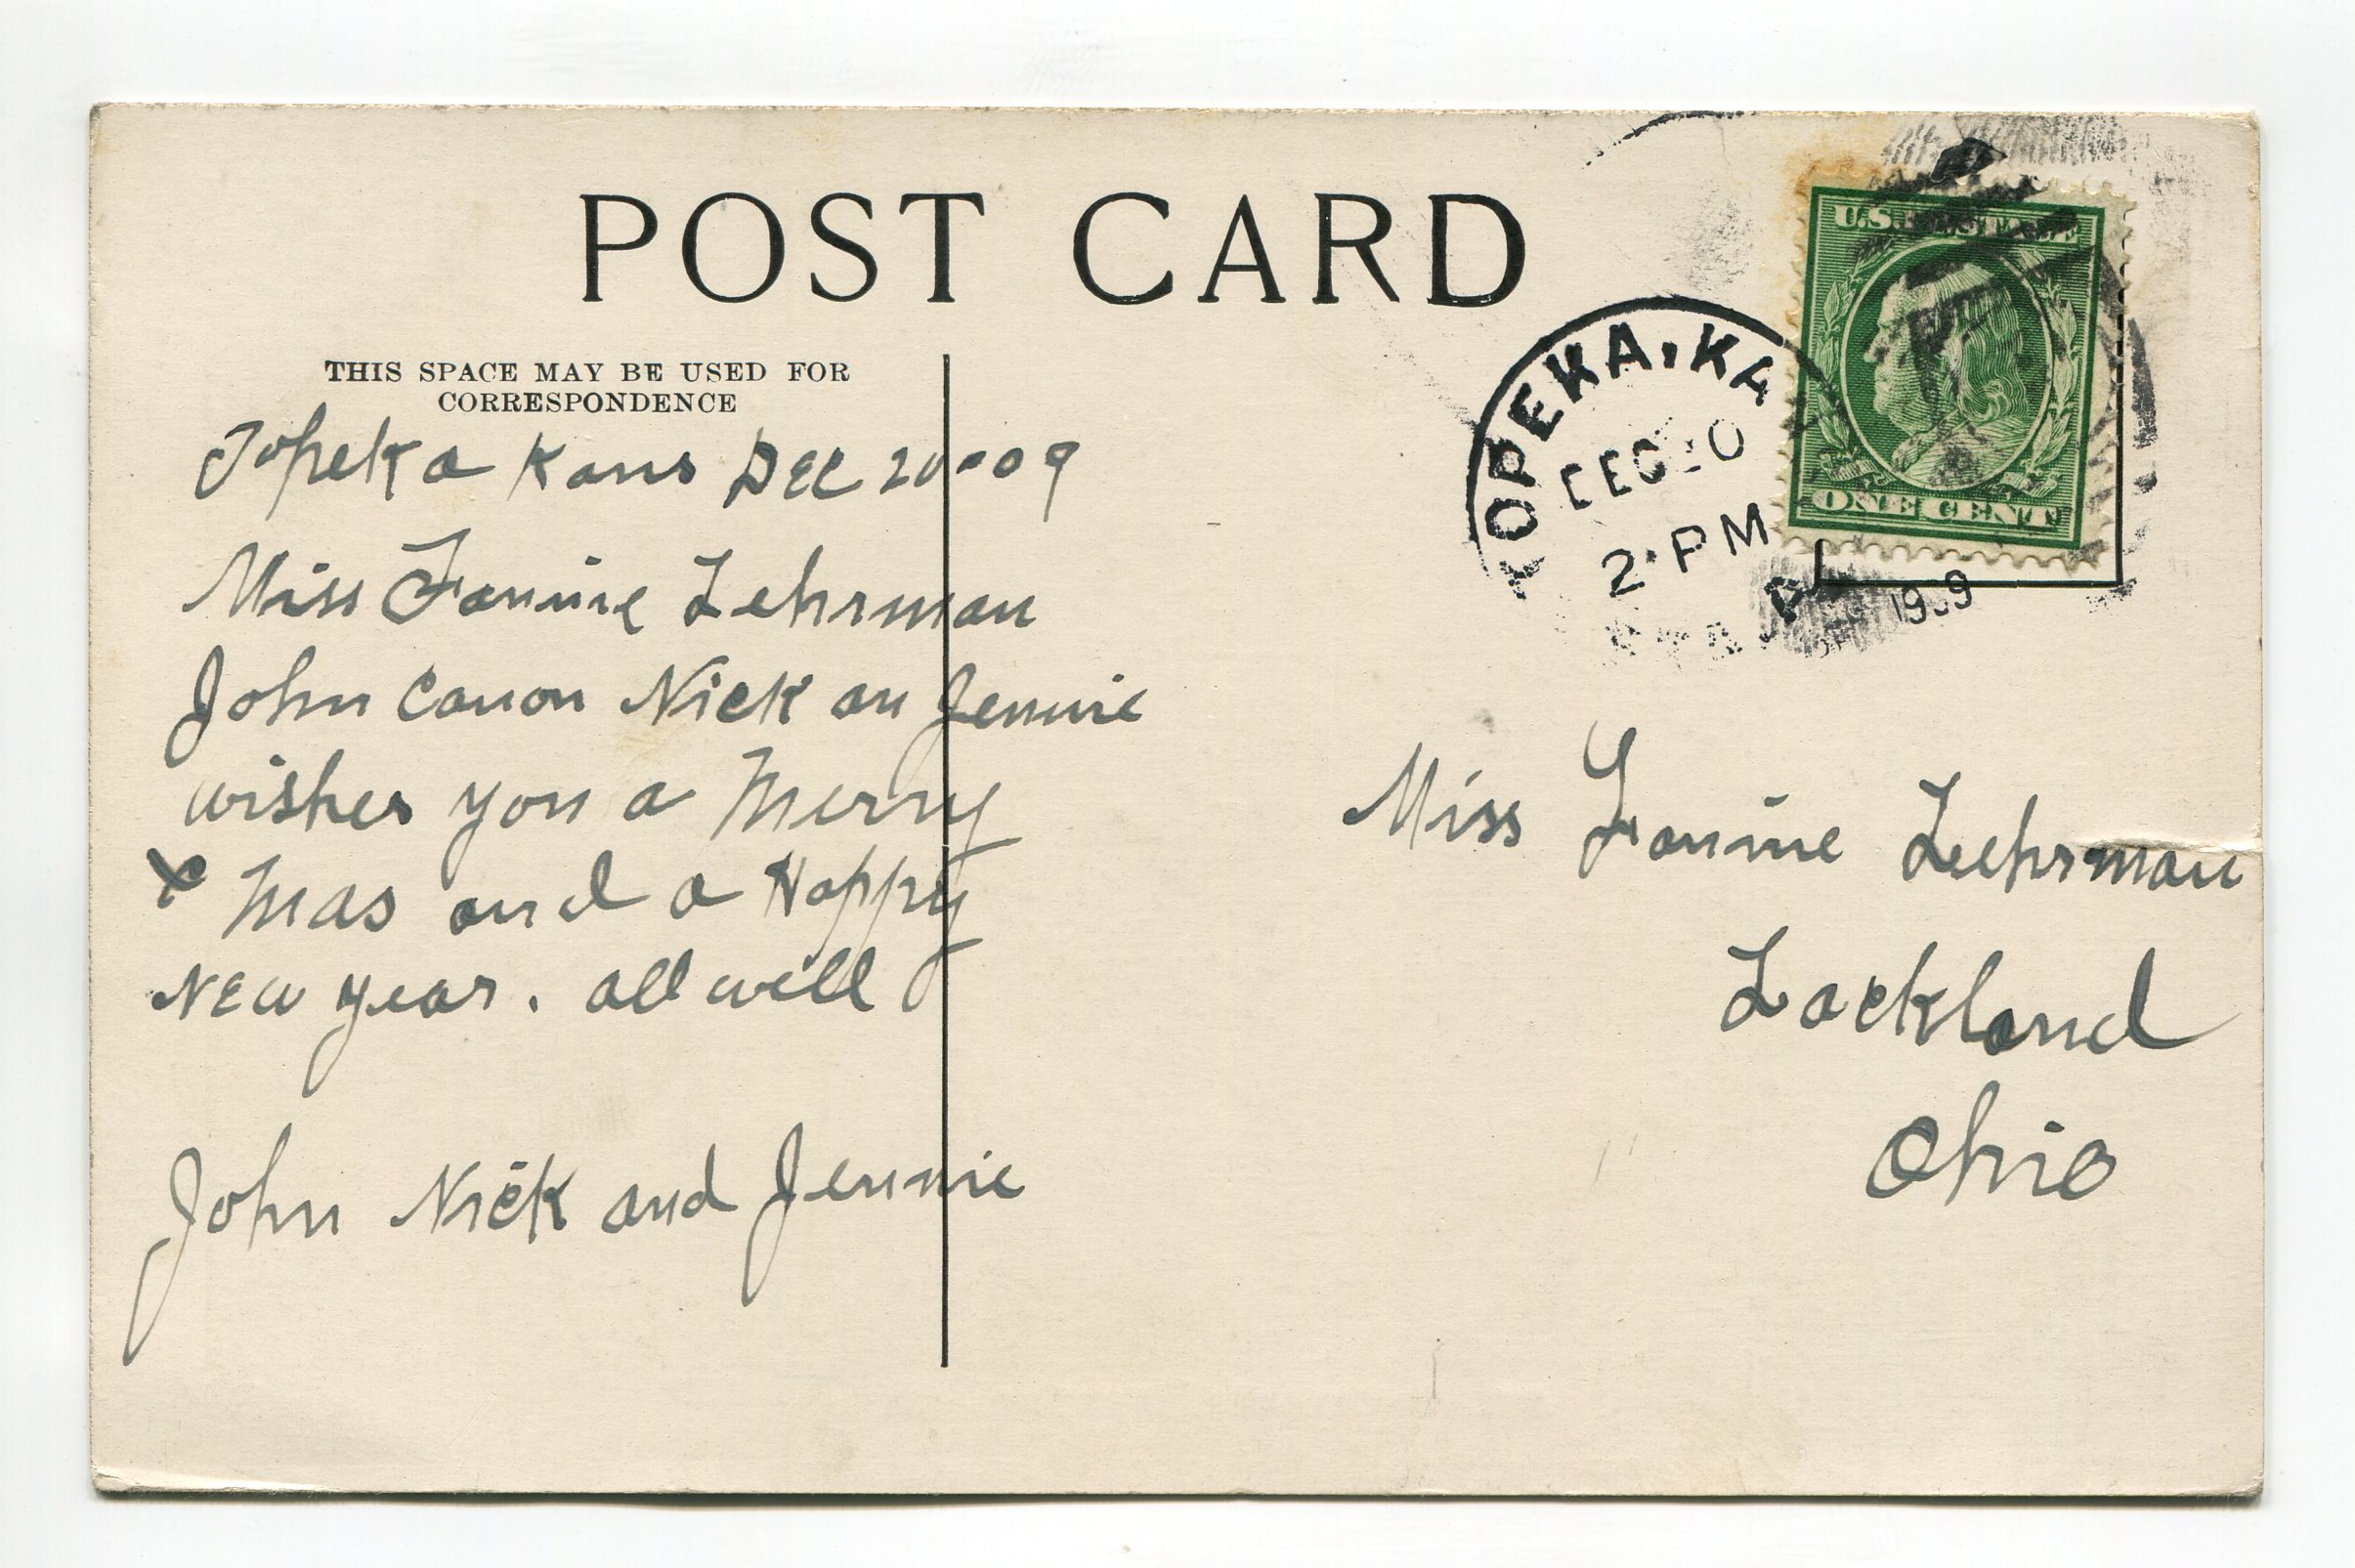 POST CARD
THIS SPACE MAY BE USED FOR
CORRESPONDENCE
Topeka Kans Dec 20-09
Miss Fannie Lehrman
John Canon Nick an Jennie
wishes you a Merry
X Mas and a Happy
New year. all well
John Nick and Jennie
U.S. POSTAGE
ONE CENT
TOPEKA, KA
DEC 20
2 PM
1909
Miss Fannie Lehrman
Lockland
Ohio